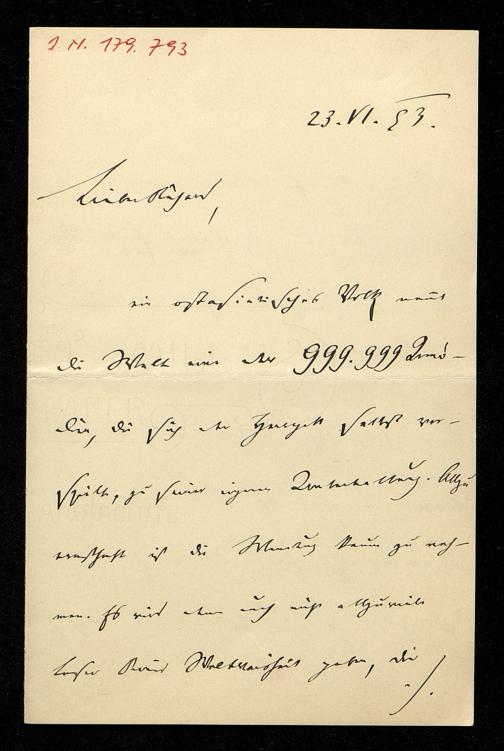 I. N. 179.793
23. VI. 93.
Lieber Richard,
ein ostasiatisches Volk nennt
die Welt eine der 999.999 Komö-
dien, die sich der Herrgott selbst vor-
spielt, zu seiner eigenen Unterhaltung. Allzu
ernsthaft ist die Meinung kaum zu neh-
men. Es wird aber auch nicht allzuviele
loser Weltweisheit geben, die
./.